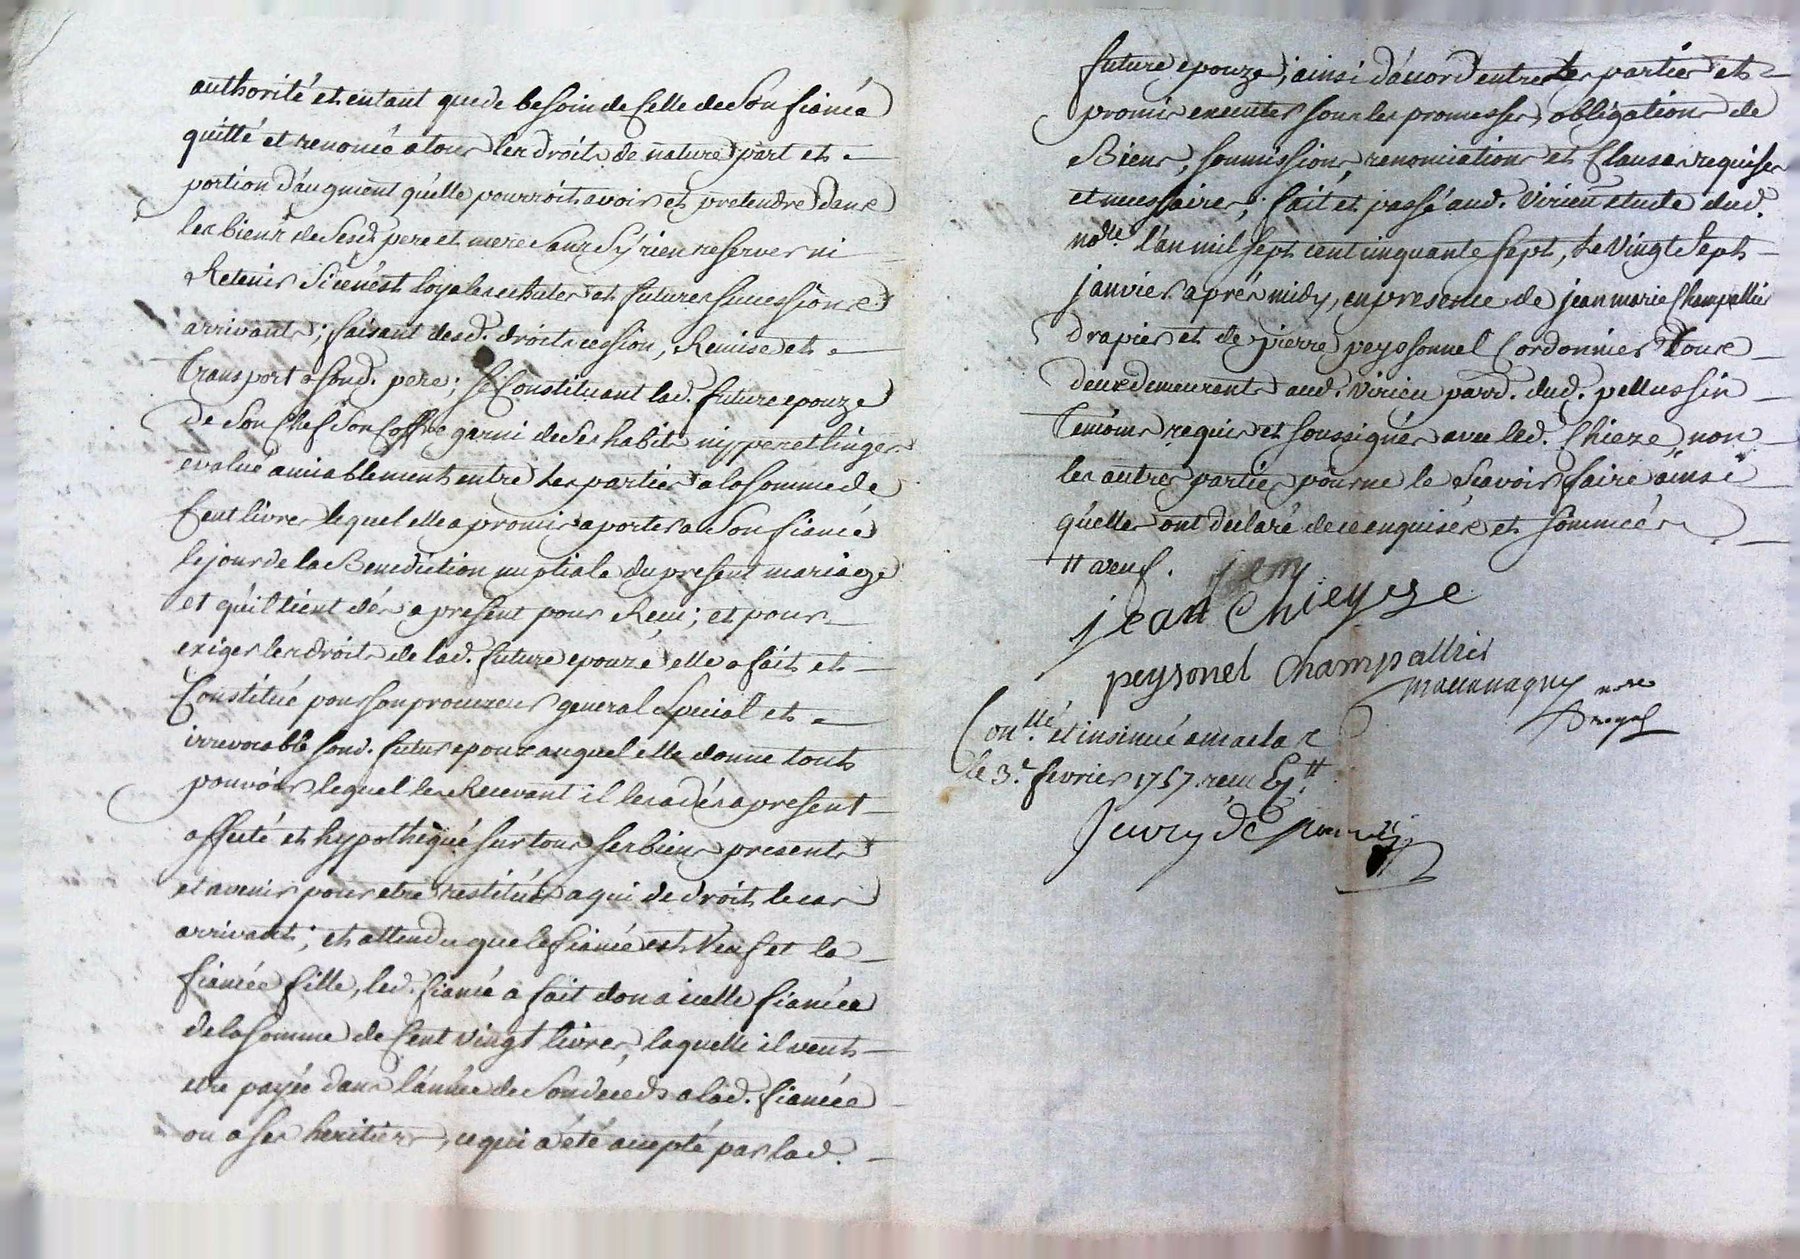 authorité et entant que de besoin de Celle de Son fiancé
quitté et renoncé a tous les droits de nature part et
portion d'augment qu'elle pourroit avoir et pretendre dans
les biens de Sesd. pere et mere Sans S'y rien reserver ni
Retenir Si ce n'est loyales echutes et futures successions
arrivants; faisant desd. droits cession, Remise et
Transport a Sond. pere; Se Constituant lad. future epouze
de Son Chef Son Coffre garni de Ses habits nippe et linges
evalué amiablement entre les parties a la Somme de
Cent livres lequel elle a promis aporter a Son fiancé
le jour de la Benediction nuptiale du present mariage
et qu'il tient dés a present pour Recu; et pour
exiger les droits de lad. future epouze elle a fait et
Constitué pour Son procureur general Special et
irrevocable Sond. futur epoux auquel elle donne tout
pouvoir lequel les Recevant il les a dés a present
affecté et hypothequé Sur tous Ses biens presents
et avenir pour etre restitués a qui de droit le cas
arrivant; et attendu que le fiancé est Veuf et la
fiancée fille, led. fiancé a fait don a icelle fiancée
de la Somme de Cent vingt livres, laquelle il veut
etre payée dans l'année de Son deceds a lad. fiancée
ou a Ses heritiers, ce qui a été accepté par lad.
future epouze; ainsi d'accord entre les parties et
promis executer Sous les promesses, obligations de
Biens, Soumissions, renonciations et Clauses requises
et necessaires; fait et passé aud. Virieu etude dud.
nore. l'an mil Sept cent cinquante Sept, le Vingt Sept
janvier aprés midy, en presence de jean marie Champallier
Drapier et de pierre peyssonnel Cordonnier tous
deux demeurants aud. Virieu parr. dud. pellussin
Temoins requis et Soussignés avec led. Chieze, non
les autres parties pour ne le Scavoir faire ainsi
qu'elles ont declaré de ce enquises et Sommées
veuf.
jean Chieyze
peysonel Champallier
nore
Con.llé et insinué a maclas
le 3.e fevrier 1757 recu